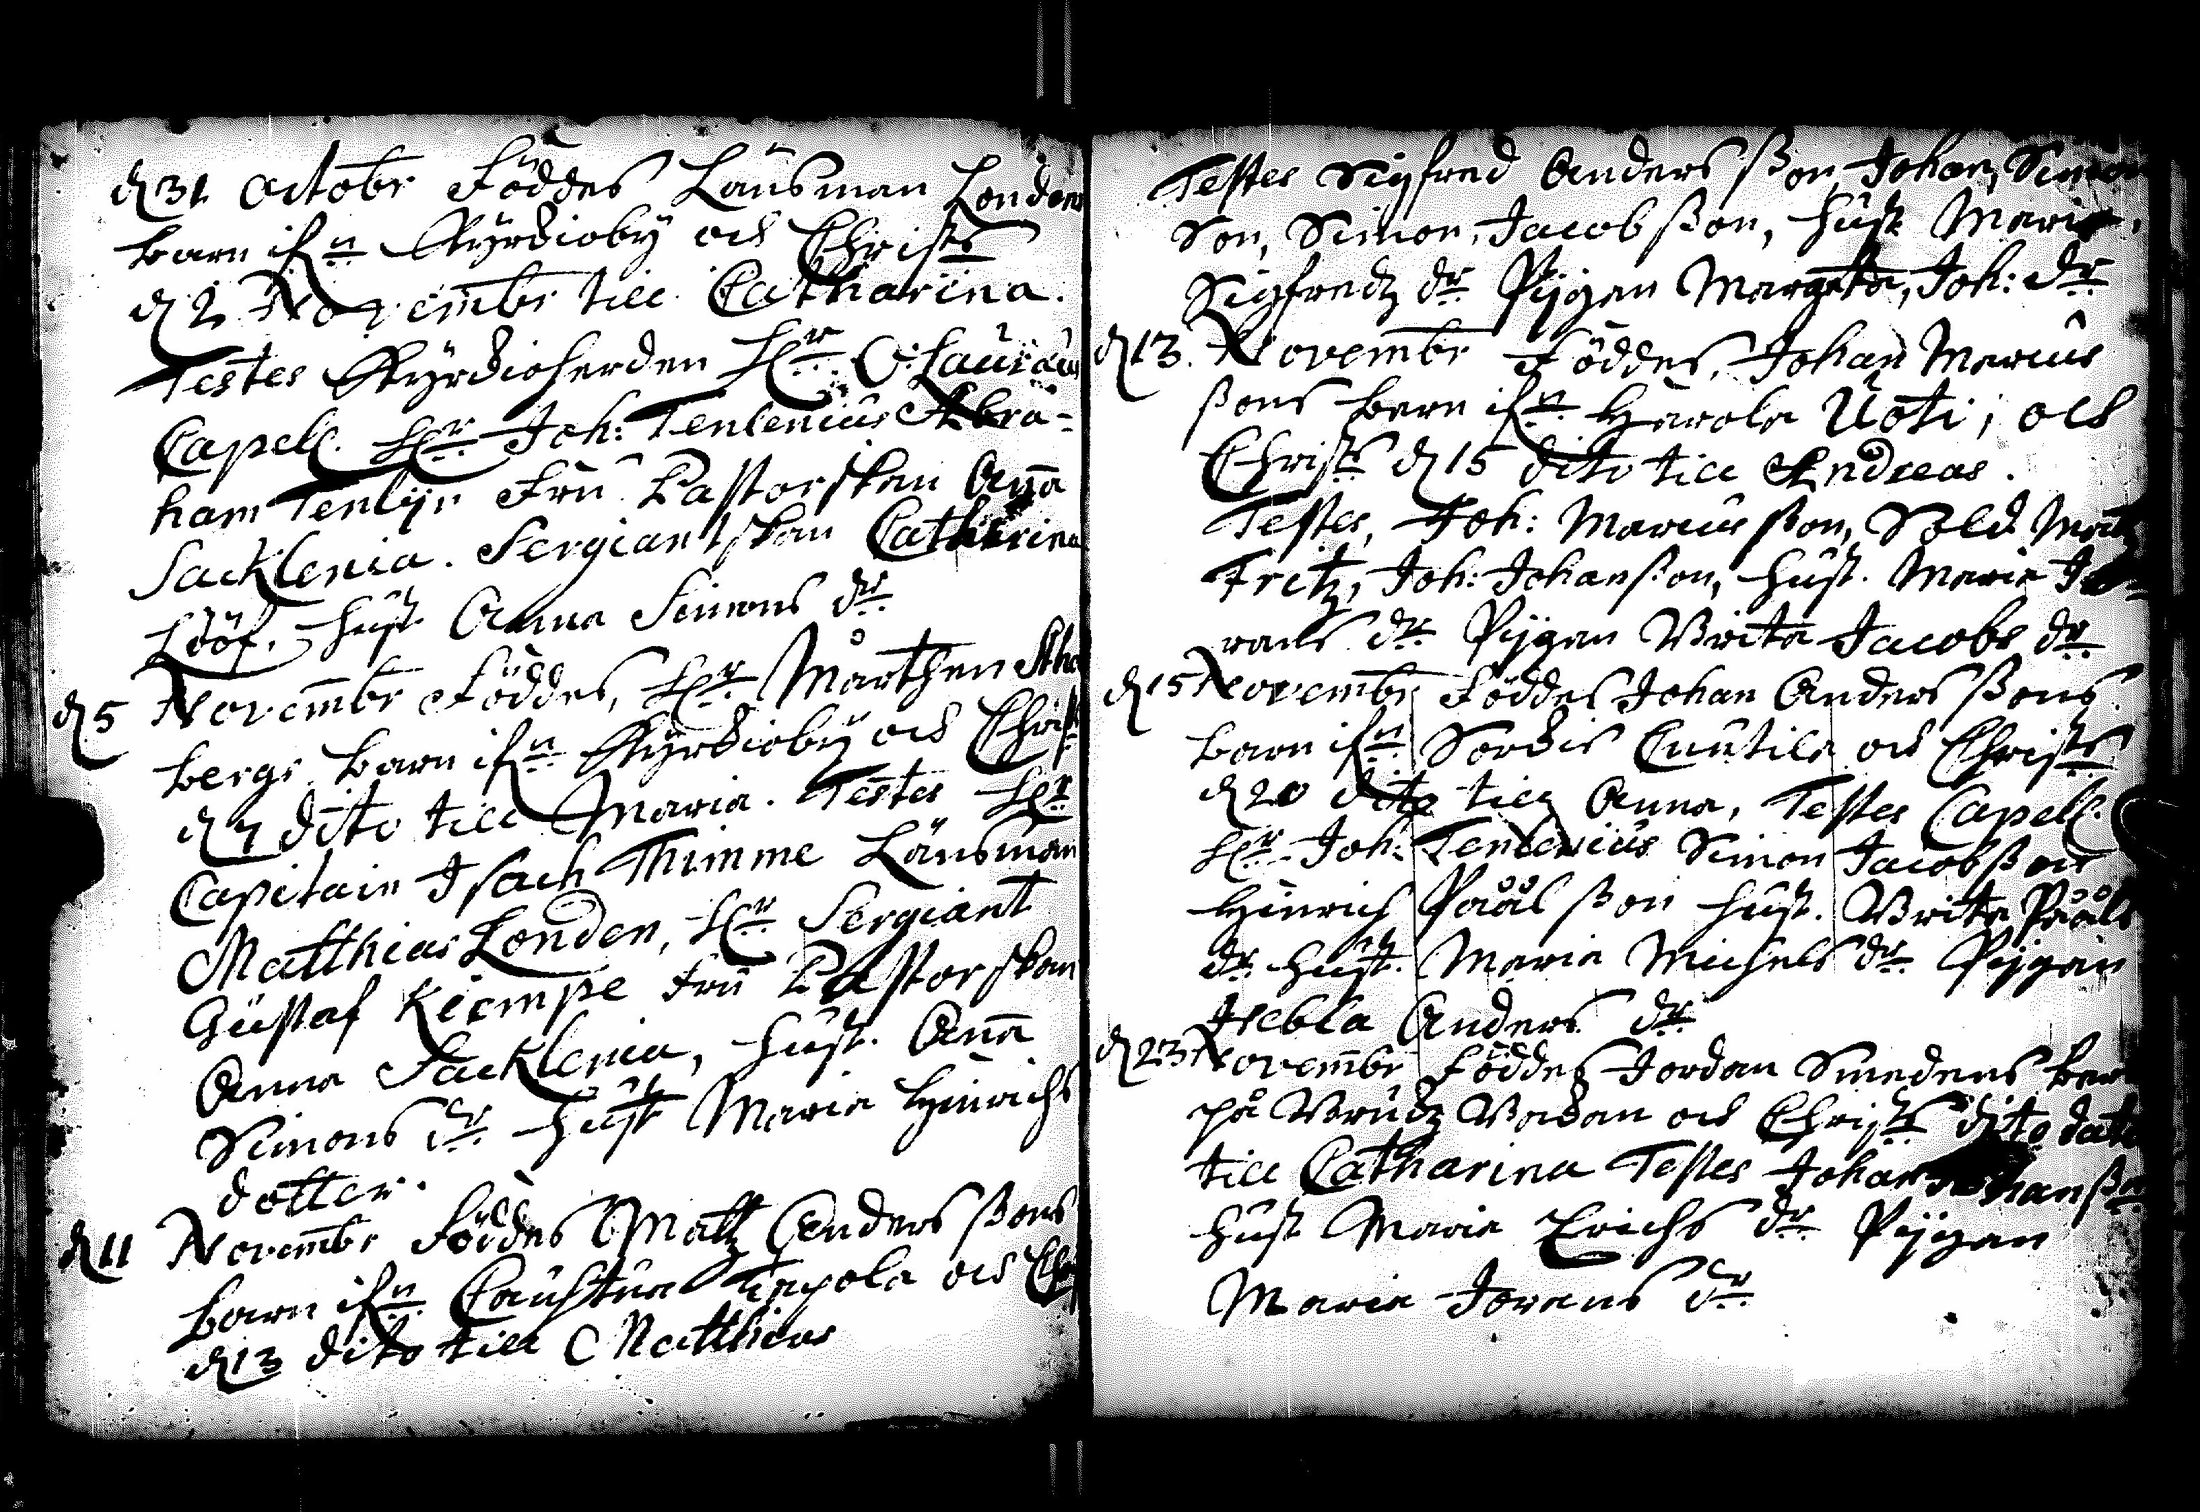 d 31 Octobr Föddes Länsman Londens
barn ifrn Kyrckioby och Christs
d 2 Novembr till Catharina.
Testes Kyrckioherden Hr O: Lauraeus
Capell. Hr Joh: Tenlenius Abra-
ham Tenlijn Fru Pastorskan Anna
Sacklenia. Sergiantskan Catharina
Lööf. hust Anna Simons dr
d 5 Novembr Föddes, Hr Mårthen
bergs barn ifrn Kyrckioby och Christ
d 7 dito till Maria. Testes Hr
Capitain Isach Thimme Länsman
Matthias Londen, Hr Sergiant
Gustaf Kiempe Fru Pastorskan
Anna Sacklenia, hust. Anna
Simons dr hust Maria Hinrichs
dotter.
d 11 Novembr Föddes Matz Anders ßons
barn ifrn och Chr
d 13 dito till Matthias
Testes Sigfred Anders ßon, Johan, Simon
Son, Simon, Jacob ßon, hust Maria,
Sigfredz dr Pijgan Margeta, Joh: dr
d 13. Novembr Föddes, Johan Marcus
ßons barn ifrn Harola Uoti, och
Christs d 15 dito till Andreas.
Testes, Joh: Marcus ßon, Sold. Matz
Fritz, Joh: Johanßon, hust. Maria Jö-
rans dr Pijgan Brita Jacobs dr
d 15 Novembr Föddes Johan Anders ßons
barn ifrn Sordis Cuutila och Christs
d 20 dito till Anna, Testes Capell.
Hr Joh: Tenlenius Simon Jacobßon
Hinrich Påål ßon hust. Brita Pååls
dr hust. Maria Michels dr Pijgan
Webla Anders dr
d 23 Novembr Föddes Jordan Smedens barn
på Brudz Backan och Christs dito dato
till Catharina Testes Johan Johanßon
hust Maria Erichs dr Pijgan
Maria Jörans dr